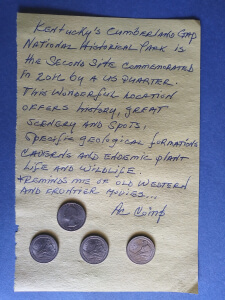 Kentucky's Cumberland Gap
National Historical Park is
the Second Site commemorated
In 2016 by a US Quarter.
This Wonderful location
offers history, great
scenery and spots,
specific geological formations
caverns and endemic plant
life and wildlife.
Reminds me of old Western
and frontier movies...